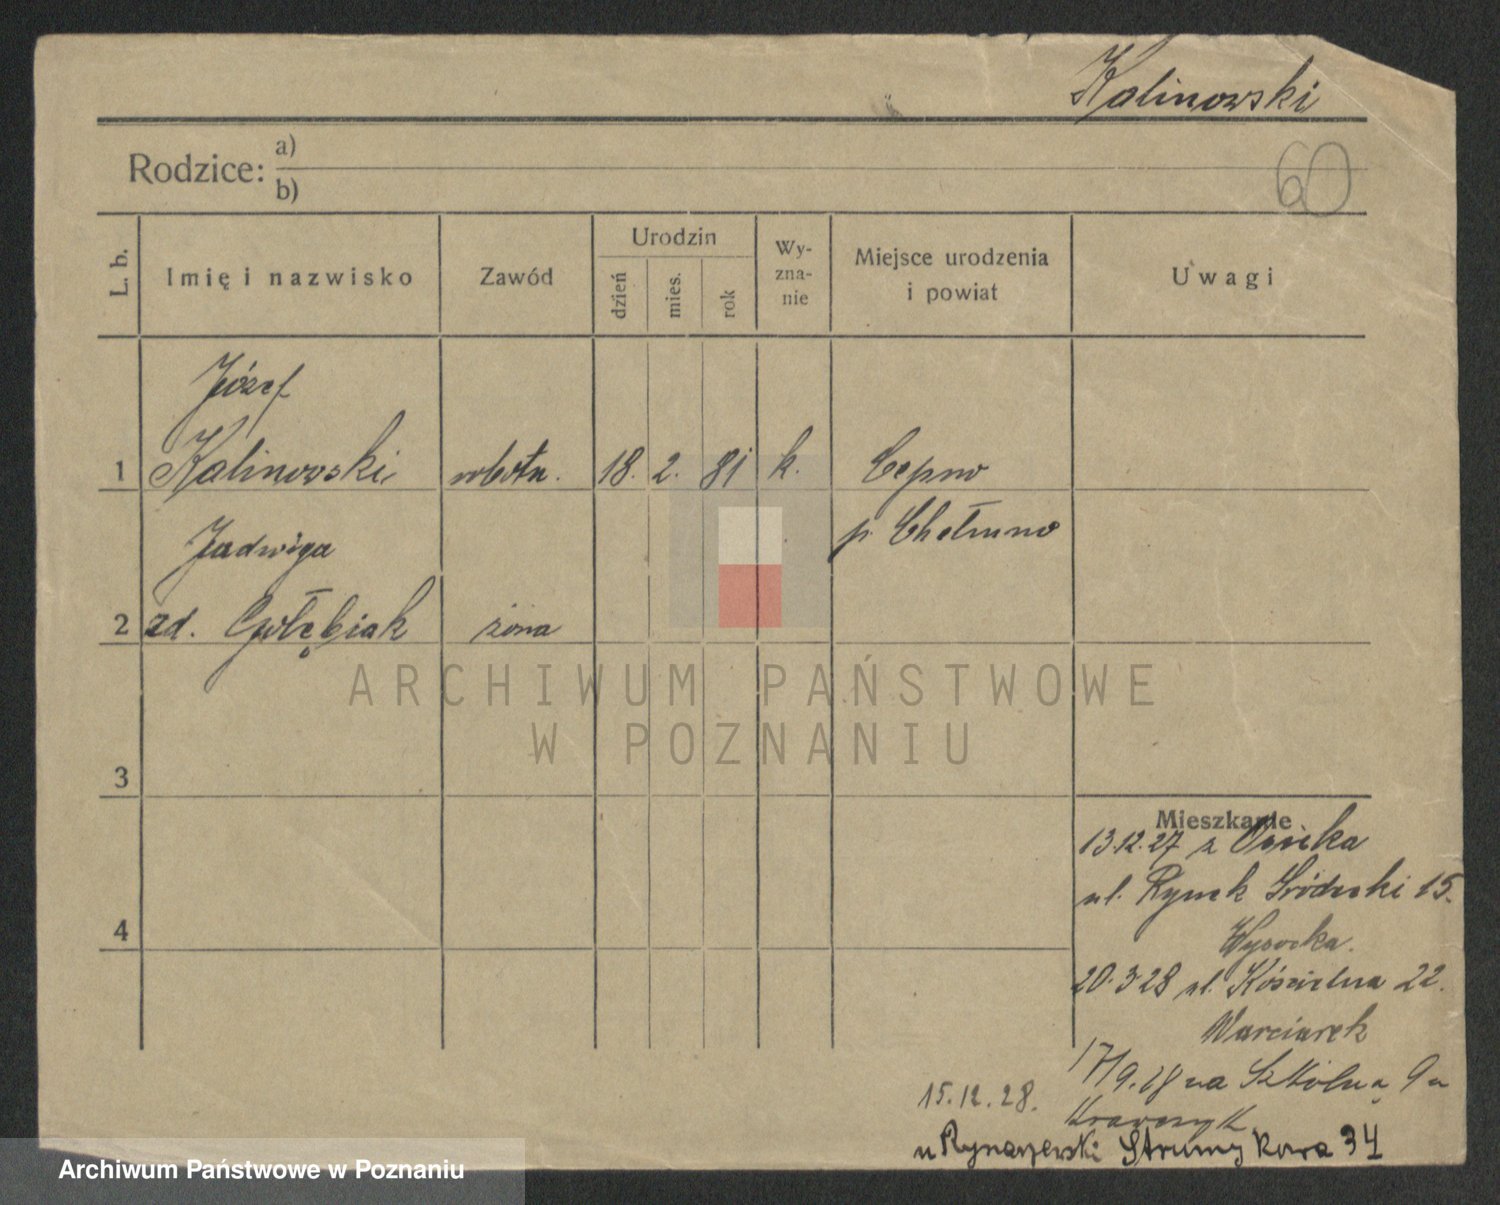 Kalinowski
60
Rodzice: a)
b)
L. b.
Imię i nazwisko
Zawód
Urodzin
dzień
mies.
rok
Wy-
zna-
nie
Miejsce urodzenia
i powiat
Uwagi
Józef
1 Kalinowski robotn. 18. 2. 81 k. Cepno
p. Chełmno
Jadwiga
2 zd. Gołębiak żona
ARCHIWUM PAŃSTWOWE
W POZNANIU
3
4
Mieszkanie
13.12.27 z
ul. Rynek Gródecki 15.
Wysocka.
20.3.28 ul. Kościelna 22.
Warciarek
17/9.28 na Szkolną 9 u
Krawczyk
15.12.28.
u Rynarzewski Strumykowa 34
Archiwum Państwowe w Poznaniu